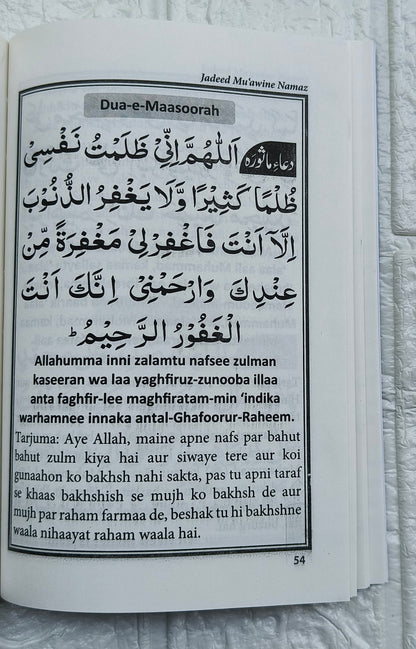 Jadeed Mu'awine Namaz
Dua-e-Maasoorah
دعاءِ ماثورہ
اَللّٰهُمَّ اِنِّىْ ظَلَمْتُ نَفْسِىْ
ظُلْمًا كَثِيْرًا وَّلَا يَغْفِرُ الذُّنُوْبَ
اِلَّآ اَنْتَ فَاغْفِرْلِىْ مَغْفِرَةً مِّنْ
عِنْدِكَ وَارْحَمْنِىْ اِنَّكَ اَنْتَ
الْغَفُوْرُ الرَّحِيْمُ ؕ
Allahumma inni zalamtu nafsee zulman
kaseeran wa laa yaghfiruz-zunooba illaa
anta faghfir-lee maghfiratam-min ‘indika
warhamnee innaka antal-Ghafoorur-Raheem.
Tarjuma: Aye Allah, maine apne nafs par bahut
bahut zulm kiya hai aur siwaye tere aur koi
gunaahon ko bakhsh nahi sakta, pas tu apni taraf
se khaas bakhshish se mujh ko bakhsh de aur
mujh par raham farmaa de, beshak tu hi bakhshne
waala nihaayat raham waala hai.
54